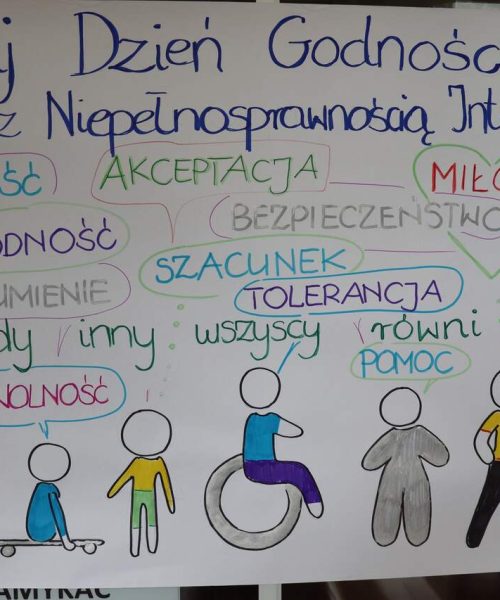 j Dzień Godnośc
z Niepełnosprawnością Int
ŚĆ AKCEPTACJA MIŁO
BEZPIECZEŃSTWO
ODNOŚĆ
SZACUNEK
UMIENIE TOLERANCJA
dy inny wszyscy równi
POMOC
WOLNOŚĆ
AMYKAĆ